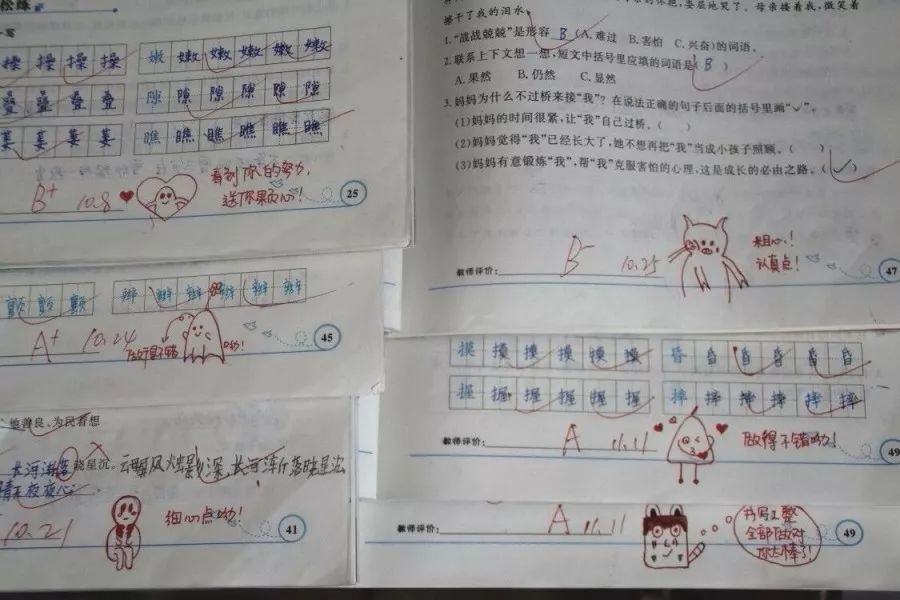 操 操 操 操 嫩 嫩 嫩 嫩 嫩 嫩
叠 叠 叠 叠 隙 隙 隙 隙 隙 隙
蒌 蒌 蒌 蒌 瞧 瞧 瞧 瞧 瞧 瞧
B+ 10.8
看到你的努力,
送你果真心!
25
擦干了我的泪水。
1.“战战兢兢”是形容 B (A.难过 B.害怕 C.兴奋)的词语。
2.联系上下文想一想,短文中括号里应填的词语是( B )
A.果然 B.仍然 C.显然
3.妈妈为什么不过桥来接“我”?在说法正确的句子后面的括号里画“✓”。
(1)妈妈的时间很紧,让“我”自己过桥。( )
(2)妈妈觉得“我”已经长大了,她不想再把“我”当成小孩子照顾。( )
(3)妈妈有意锻炼“我”,帮“我”克服害怕的心理,这是成长的必由之路。(✓)
教师评价: B 10.25
粗心!
认真点!
47
颤 颤 颤 辫 辫 辫 辫 辫 辫
A+ 10.24
做得不错哟!
45
摸 摸 摸 摸 摸 摸 昏 昏 昏 昏 昏 昏
握 握 握 握 握 握 摔 摔 摔 摔 摔 摔
教师评价: A 11.11
做得不错哟!
49
善良、为民着想
晓星沉。
夜夜心
10.21
细心点哟!
41
教师评价: A 11.11
书写工整
全部做对
你太棒了!
49